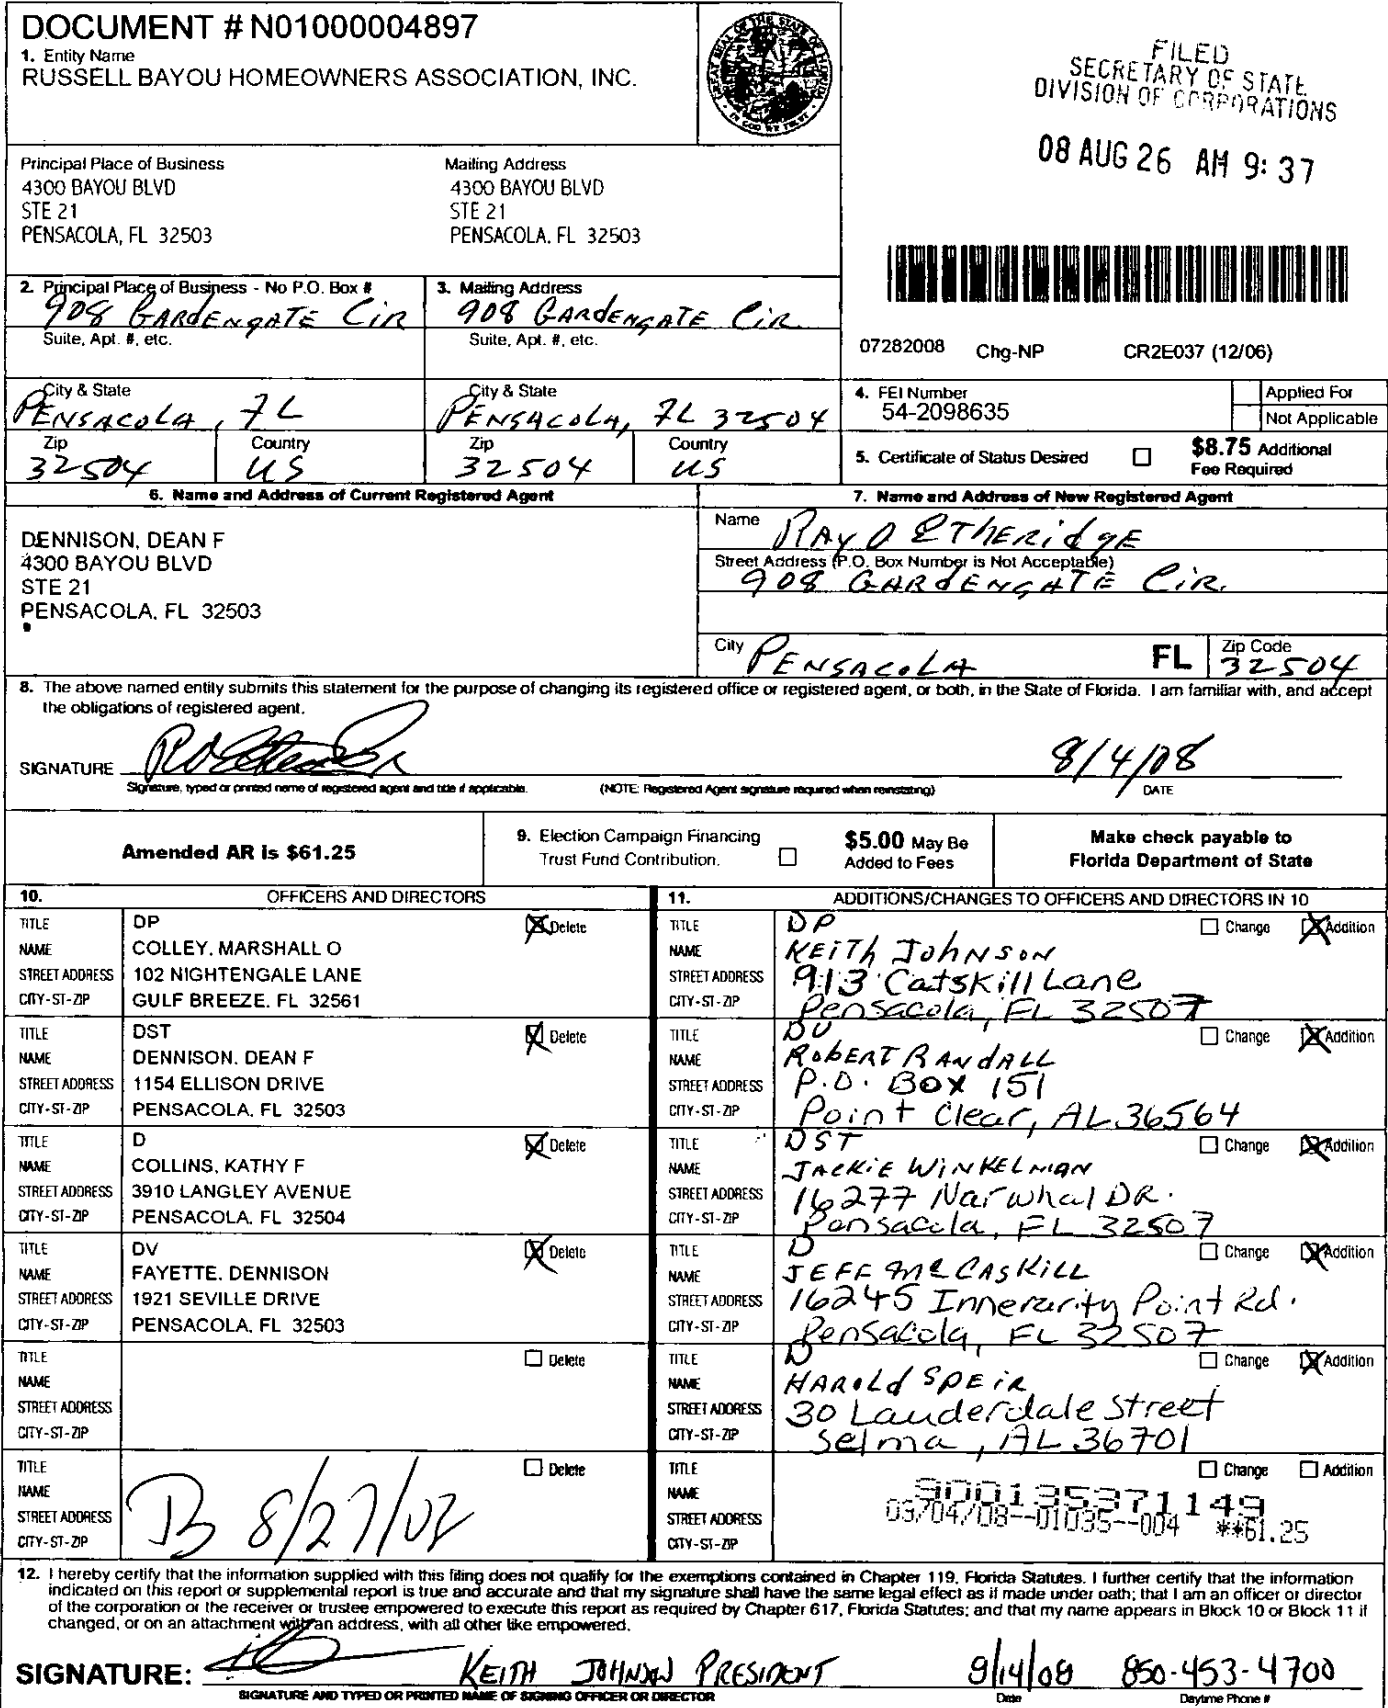 DOCUMENT # N01000004897
1. Entity Name
RUSSELL BAYOU HOMEOWNERS ASSOCIATION, INC.
FILED
SECRETARY OF STATE
DIVISION OF CORPORATIONS
08 AUG 26 AM 9:37
Principal Place of Business
4300 BAYOU BLVD
STE 21
PENSACOLA, FL 32503
Mailing Address
4300 BAYOU BLVD
STE 21
PENSACOLA, FL 32503
2. Principal Place of Business - No P.O. Box #
908 GARDENGATE CIR
3. Mailing Address
908 GARDENGATE CIR.
Suite, Apt. #, etc.
Suite, Apt. #, etc.
07282008 Chg-NP CR2E037 (12/06)
City & State
PENSACOLA, FL
City & State
PENSACOLA, FL 32504
Zip
32504
Country
US
Zip
32504
Country
US
4. FEI Number
54-2098635
Applied For
Not Applicable
5. Certificate of Status Desired
$8.75 Additional
Fee Required
6. Name and Address of Current Registered Agent
DENNISON, DEAN F
4300 BAYOU BLVD
STE 21
PENSACOLA, FL 32503
7. Name and Address of New Registered Agent
Name RAY D ETHERIDGE
Street Address (P.O. Box Number is Not Acceptable)
908 GARDENGATE CIR.
City PENSACOLA FL Zip Code 32504
8. The above named entity submits this statement for the purpose of changing its registered office or registered agent, or both, in the State of Florida. I am familiar with, and accept
the obligations of registered agent.
SIGNATURE 8/4/08
Signature, typed or printed name of registered agent and title if applicable. (NOTE: Registered Agent signature required when reinstating) DATE
Amended AR is $61.25
9. Election Campaign Financing
Trust Fund Contribution.
$5.00 May Be
Added to Fees
Make check payable to
Florida Department of State
10. OFFICERS AND DIRECTORS
TITLE DP Delete
NAME COLLEY, MARSHALL O
STREET ADDRESS 102 NIGHTENGALE LANE
CITY-ST-ZIP GULF BREEZE, FL 32561
TITLE DST Delete
NAME DENNISON, DEAN F
STREET ADDRESS 1154 ELLISON DRIVE
CITY-ST-ZIP PENSACOLA, FL 32503
TITLE D Delete
NAME COLLINS, KATHY F
STREET ADDRESS 3910 LANGLEY AVENUE
CITY-ST-ZIP PENSACOLA, FL 32504
TITLE DV Delete
NAME FAYETTE, DENNISON
STREET ADDRESS 1921 SEVILLE DRIVE
CITY-ST-ZIP PENSACOLA, FL 32503
TITLE Delete
NAME
STREET ADDRESS
CITY-ST-ZIP
TITLE Delete
NAME
STREET ADDRESS
CITY-ST-ZIP
11. ADDITIONS/CHANGES TO OFFICERS AND DIRECTORS IN 10
TITLE DP Change Addition
NAME KEITH JOHNSON
STREET ADDRESS 913 Catskill Lane
CITY-ST-ZIP Pensacola, FL 32507
TITLE DV Change Addition
NAME ROBERT RANDALL
STREET ADDRESS P.O. BOX 151
CITY-ST-ZIP Point Clear, AL 36564
TITLE DST Change Addition
NAME JACKIE WINKELMAN
STREET ADDRESS 16277 Narwhal DR.
CITY-ST-ZIP Pensacola, FL 32507
TITLE D Change Addition
NAME JEFF McCASKILL
STREET ADDRESS 16245 Innerarity Point Rd.
CITY-ST-ZIP Pensacola, FL 32507
TITLE D Change Addition
NAME HAROLD SPEIR
STREET ADDRESS 30 Lauderdale Street
CITY-ST-ZIP Selma, AL 36701
TITLE Change Addition
NAME 900135371149
STREET ADDRESS 09/04/08--01035--004 **61.25
CITY-ST-ZIP
12. I hereby certify that the information supplied with this filing does not qualify for the exemptions contained in Chapter 119, Florida Statutes. I further certify that the information
indicated on this report or supplemental report is true and accurate and that my signature shall have the same legal effect as if made under oath; that I am an officer or director
of the corporation or the receiver or trustee empowered to execute this report as required by Chapter 617, Florida Statutes; and that my name appears in Block 10 or Block 11 if
changed, or on an attachment with an address, with all other like empowered.
SIGNATURE: KEITH JOHNSON PRESIDENT 8/14/08 850-453-4700
SIGNATURE AND TYPED OR PRINTED NAME OF SIGNING OFFICER OR DIRECTOR Date Daytime Phone #